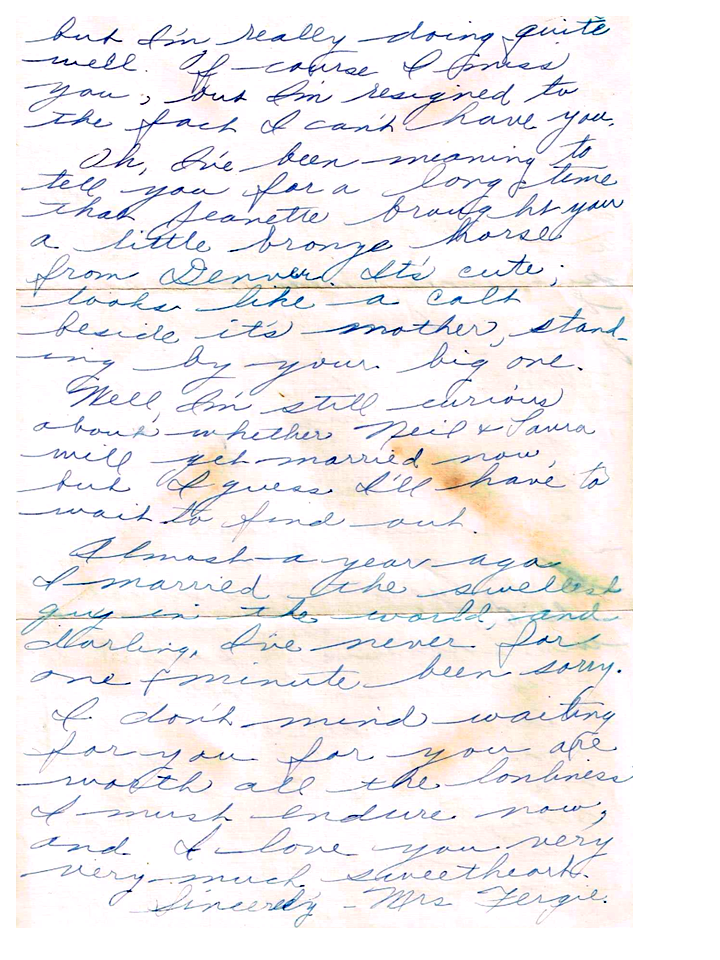 but I'm really doing quite
well. Of course I miss
you, but I'm resigned to
the fact I can't have you.
Oh, I've been meaning to
tell you for a long time
that Jeanette brought you
a little bronze horse
from Denver. It's cute;
looks like a colt
beside it's mother, stand-
ing by your big one.
Well, I'm still curious
about whether Neil & Laura
will get married now,
but I guess I'll have to
wait to find out.
Almost a year ago
I married the swellest
guy in the world, and
darling, I've never for
one minute been sorry.
I don't mind waiting
for you for you are
worth all the lonliness
I must endure now,
and I love you very
very much sweetheart.
Sincerely - Mrs Fergie.